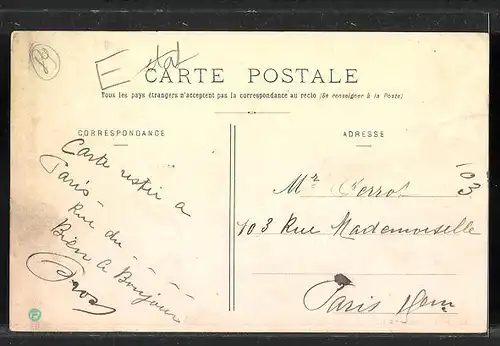 89
E
CARTE POSTALE
Tous les pays étrangers n'acceptent pas la correspondance au recto (Se renseigner à la Poste)
CORRESPONDANCE
Carte a
Paris -
Rue du - - - -
Bien le Bonjour
ADRESSE
103
Mr Perrot
103 Rue Mademoiselle
Paris